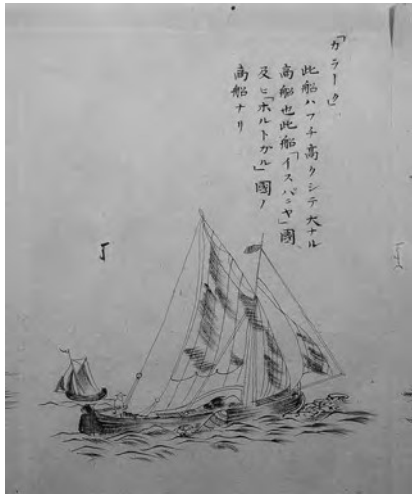 「カラーク」
此船ハフチ高クシテ大ナル
商船也此船「イスパニヤ」國
及ヒ「ホルトガル」國ノ
商船ナリ